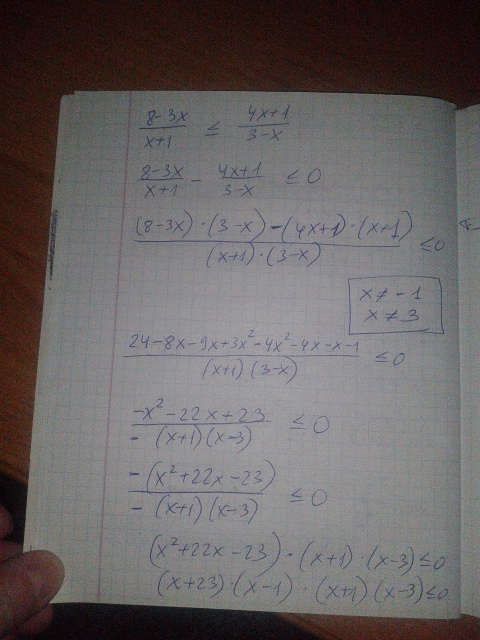 (8-3x)/(x+1) ≤ (4x+1)/(3-x)
(8-3x)/(x+1) - (4x+1)/(3-x) ≤ 0
((8-3x)·(3-x)-(4x+1)·(x+1))/((x+1)·(3-x)) ≤0
x≠-1
x≠3
(24-8x-9x+3x²-4x²-4x-x-1)/((x+1)(3-x)) ≤0
(-x²-22x+23)/(-(x+1)(x-3)) ≤0
(-(x²+22x-23))/(-(x+1)(x-3)) ≤0
(x²+22x-23)·(x+1)·(x-3)≤0
(x+23)·(x-1)·(x+1)(x-3)≤0